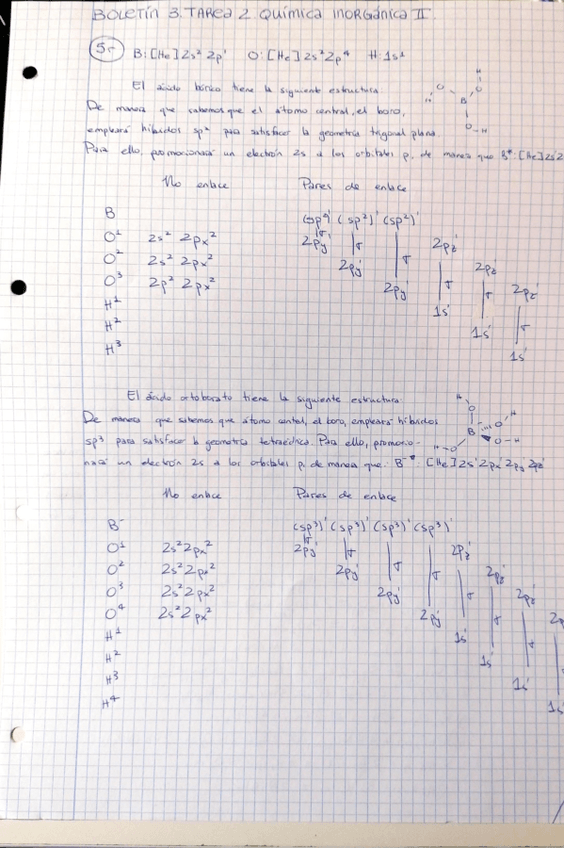 BOLETÍN 3. TAREA 2 QUÍMICA INORGÁNICA II
5.- B:[He]2s² 2p¹ O:[He]2s²2p⁴ H:1s¹
El ácido bórico tiene la siguiente estructura:
De manera que sabemos que el átomo central, el boro,
empleará híbridos sp² para satisfacer la geometría trigonal plana.
Para ello, promocionará un electrón 2s a los orbitales p, de manera que B*:[He]2s¹2
H O O H
B
O-H
No enlace Pares de enlace
B (sp²)¹ (sp²)¹ (sp²)¹
O¹ 2s² 2px² 2py¹ 2pz¹
O² 2s² 2px² 2py¹ 2pz¹
O³ 2p² 2px² 2py¹ 2pz¹
H¹ 1s¹
H² 1s¹
H³ 1s¹
El ácido ortoborato tiene la siguiente estructura:
De manera que sabemos que átomo central, el boro, empleará híbridos
sp³ para satisfacer la geometría tetraédrica. Para ello, promocio-
nará un electrón 2s a los orbitales p, de manera que: B⁻*: [He]2s¹2px¹2py¹2pz¹
H O H
B O
H-O O-H
No enlace Pares de enlace
B⁻ (sp³)¹ (sp³)¹ (sp³)¹ (sp³)¹
O¹ 2s²2px² 2py¹ 2pz¹
O² 2s²2px² 2py¹ 2pz¹
O³ 2s²2px² 2py¹ 2pz¹
O⁴ 2s²2px² 2py¹ 2p
H¹ 1s¹
H² 1s¹
H³ 1s¹
H⁴ 1s